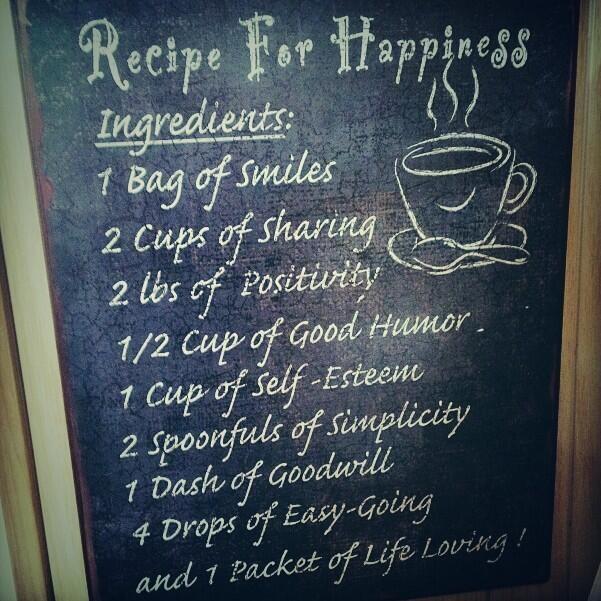 Recipe For Happiness
Ingredients:
1 Bag of Smiles
2 Cups of Sharing
2 lbs of Positivity
1/2 Cup of Good Humor
1 Cup of Self-Esteem
2 Spoonfuls of Simplicity
1 Dash of Goodwill
4 Drops of Easy-Going
and 1 Packet of Life Loving !